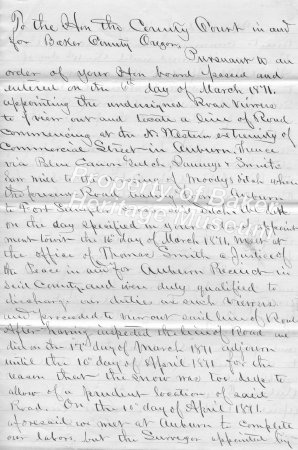 To the Hon the County Court in and
for Baker County Oregon,
Pursuant to an
order of your Hon board passed and
entered on the day of March 1871,
appointing the undersigned Road Viewers
to view out and locate a line of Road
commencing at the N. Western extremity of
Commercial Street in Auburn. thence
via Blue Canon &
Saw mill to the crossing of Moodys ditch where
the present Road leading from Auburn
to Fort
on the day specified in your order of appoint
ment towit the 16th day of March 1871, meet at
the office of Thomas Smith a Justice of
the Peace in and for Auburn Precinct in
said County and were duly qualified to
discharge our duties as such Viewers
and proceeded to view out said line of Road
After having inspected the line of Road we
did on the 17th day of March 1871 adjourn
until the 10th day of April 1871 for the
reason that the snow was too deep to
allow of a prudent location of said
Road. On the 10th day of April 1871.
aforesaid we met at Auburn to complete
our labors, but the Surveyor appointed by
Property of Baker
Heritage Museum